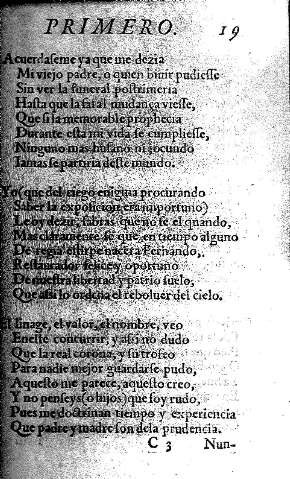 PRIMERO. 19
Acuerdaseme ya que me dezia
Mi viejo padre, o quien biuir pudiesse
Sin ver la funeral postrimeria
Hasta que la fatal mudança viesse,
Que si la memorable prophecia
Durante esta mi vida se cumpliesse,
Ninguno mas vfano ni jocundo
Iamas se partiria deste mundo.
Yo que del ciego enigma procurando
Saber la exposicion era importuno)
Le oy dezir, sabras que no se el quando,
Mas claramente se que en tiempo alguno
De regia estirpe nacera Fernando,
Restaurador felice y oportuno
De nuestra libertad y patrio suelo,
Que assi lo ordena el reboluer del cielo.
El linage, el valor, el nombre, veo
Eneste concurrir, y assi no dudo
Que la real corona, y su trofeo
Para nadie mejor guardarse pudo,
Aquesto me parece, aquesto creo,
Y no penseys (o hijos) que soy rudo,
Pues me doctrinan tiempo y experiencia
Que padre y madre son dela prudencia.
C 3 Nun-